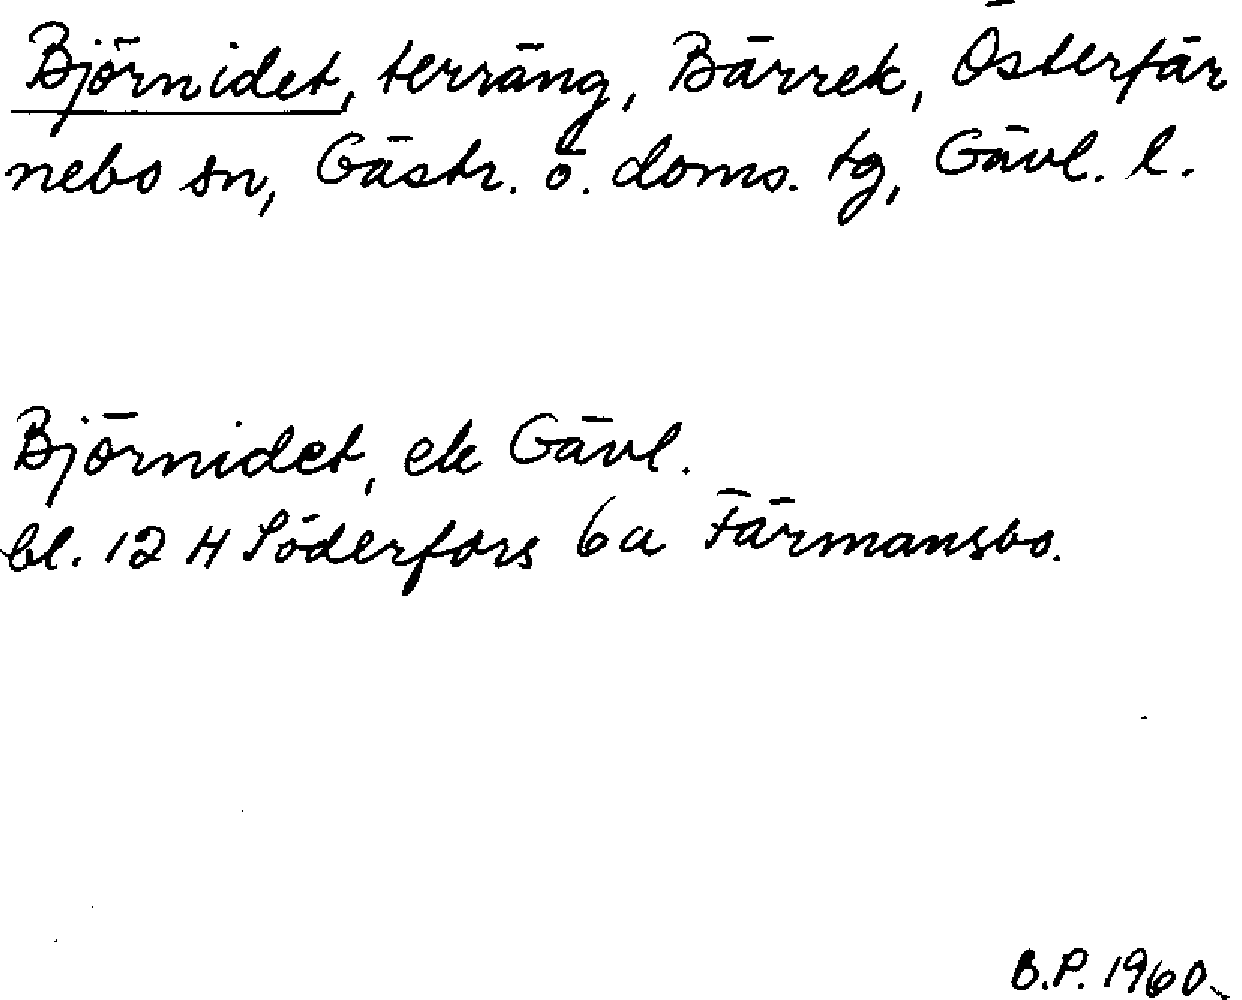 Björnidet, terräng, Bärrek, Österfär
nebo sn, Gästr. ö. doms. tg, Gävl. l.
Björnidet, ek Gävl.
bl. 12 H Söderfors 6a Färmansbo.
B.P. 1960